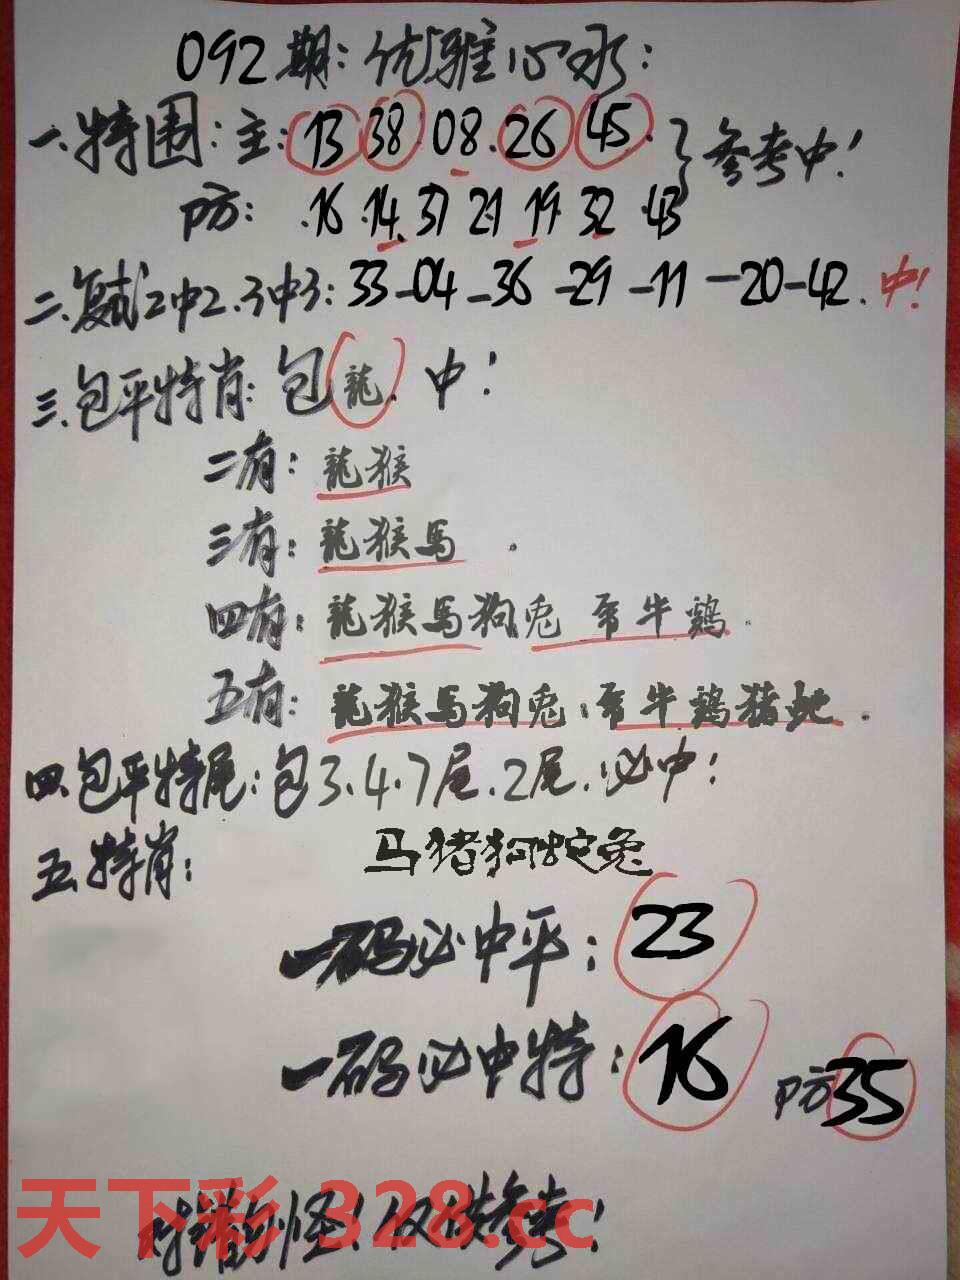 092期:优雅心水:
一.特围:主:13 38 08.26 45.}参考中!
防:.16 14.37 21 19 32 43
二.复试2中2.3中3:33-04-36-29-11-20-42.中!
三.包平特肖:包龍.中!
二有:龍猴
三有:龍猴馬.
四有:龍猴馬狗兎 牛鷄.
五有:龍猴馬狗兎 牛鷄猪虵.
四.包平特尾:包3.4.7尾.2尾.必中!
五.特肖: 马猪狗蛇兔
一码必中平:23
一码必中特:16 防35
天下彩 328.cc
错别怪!仅供参考!